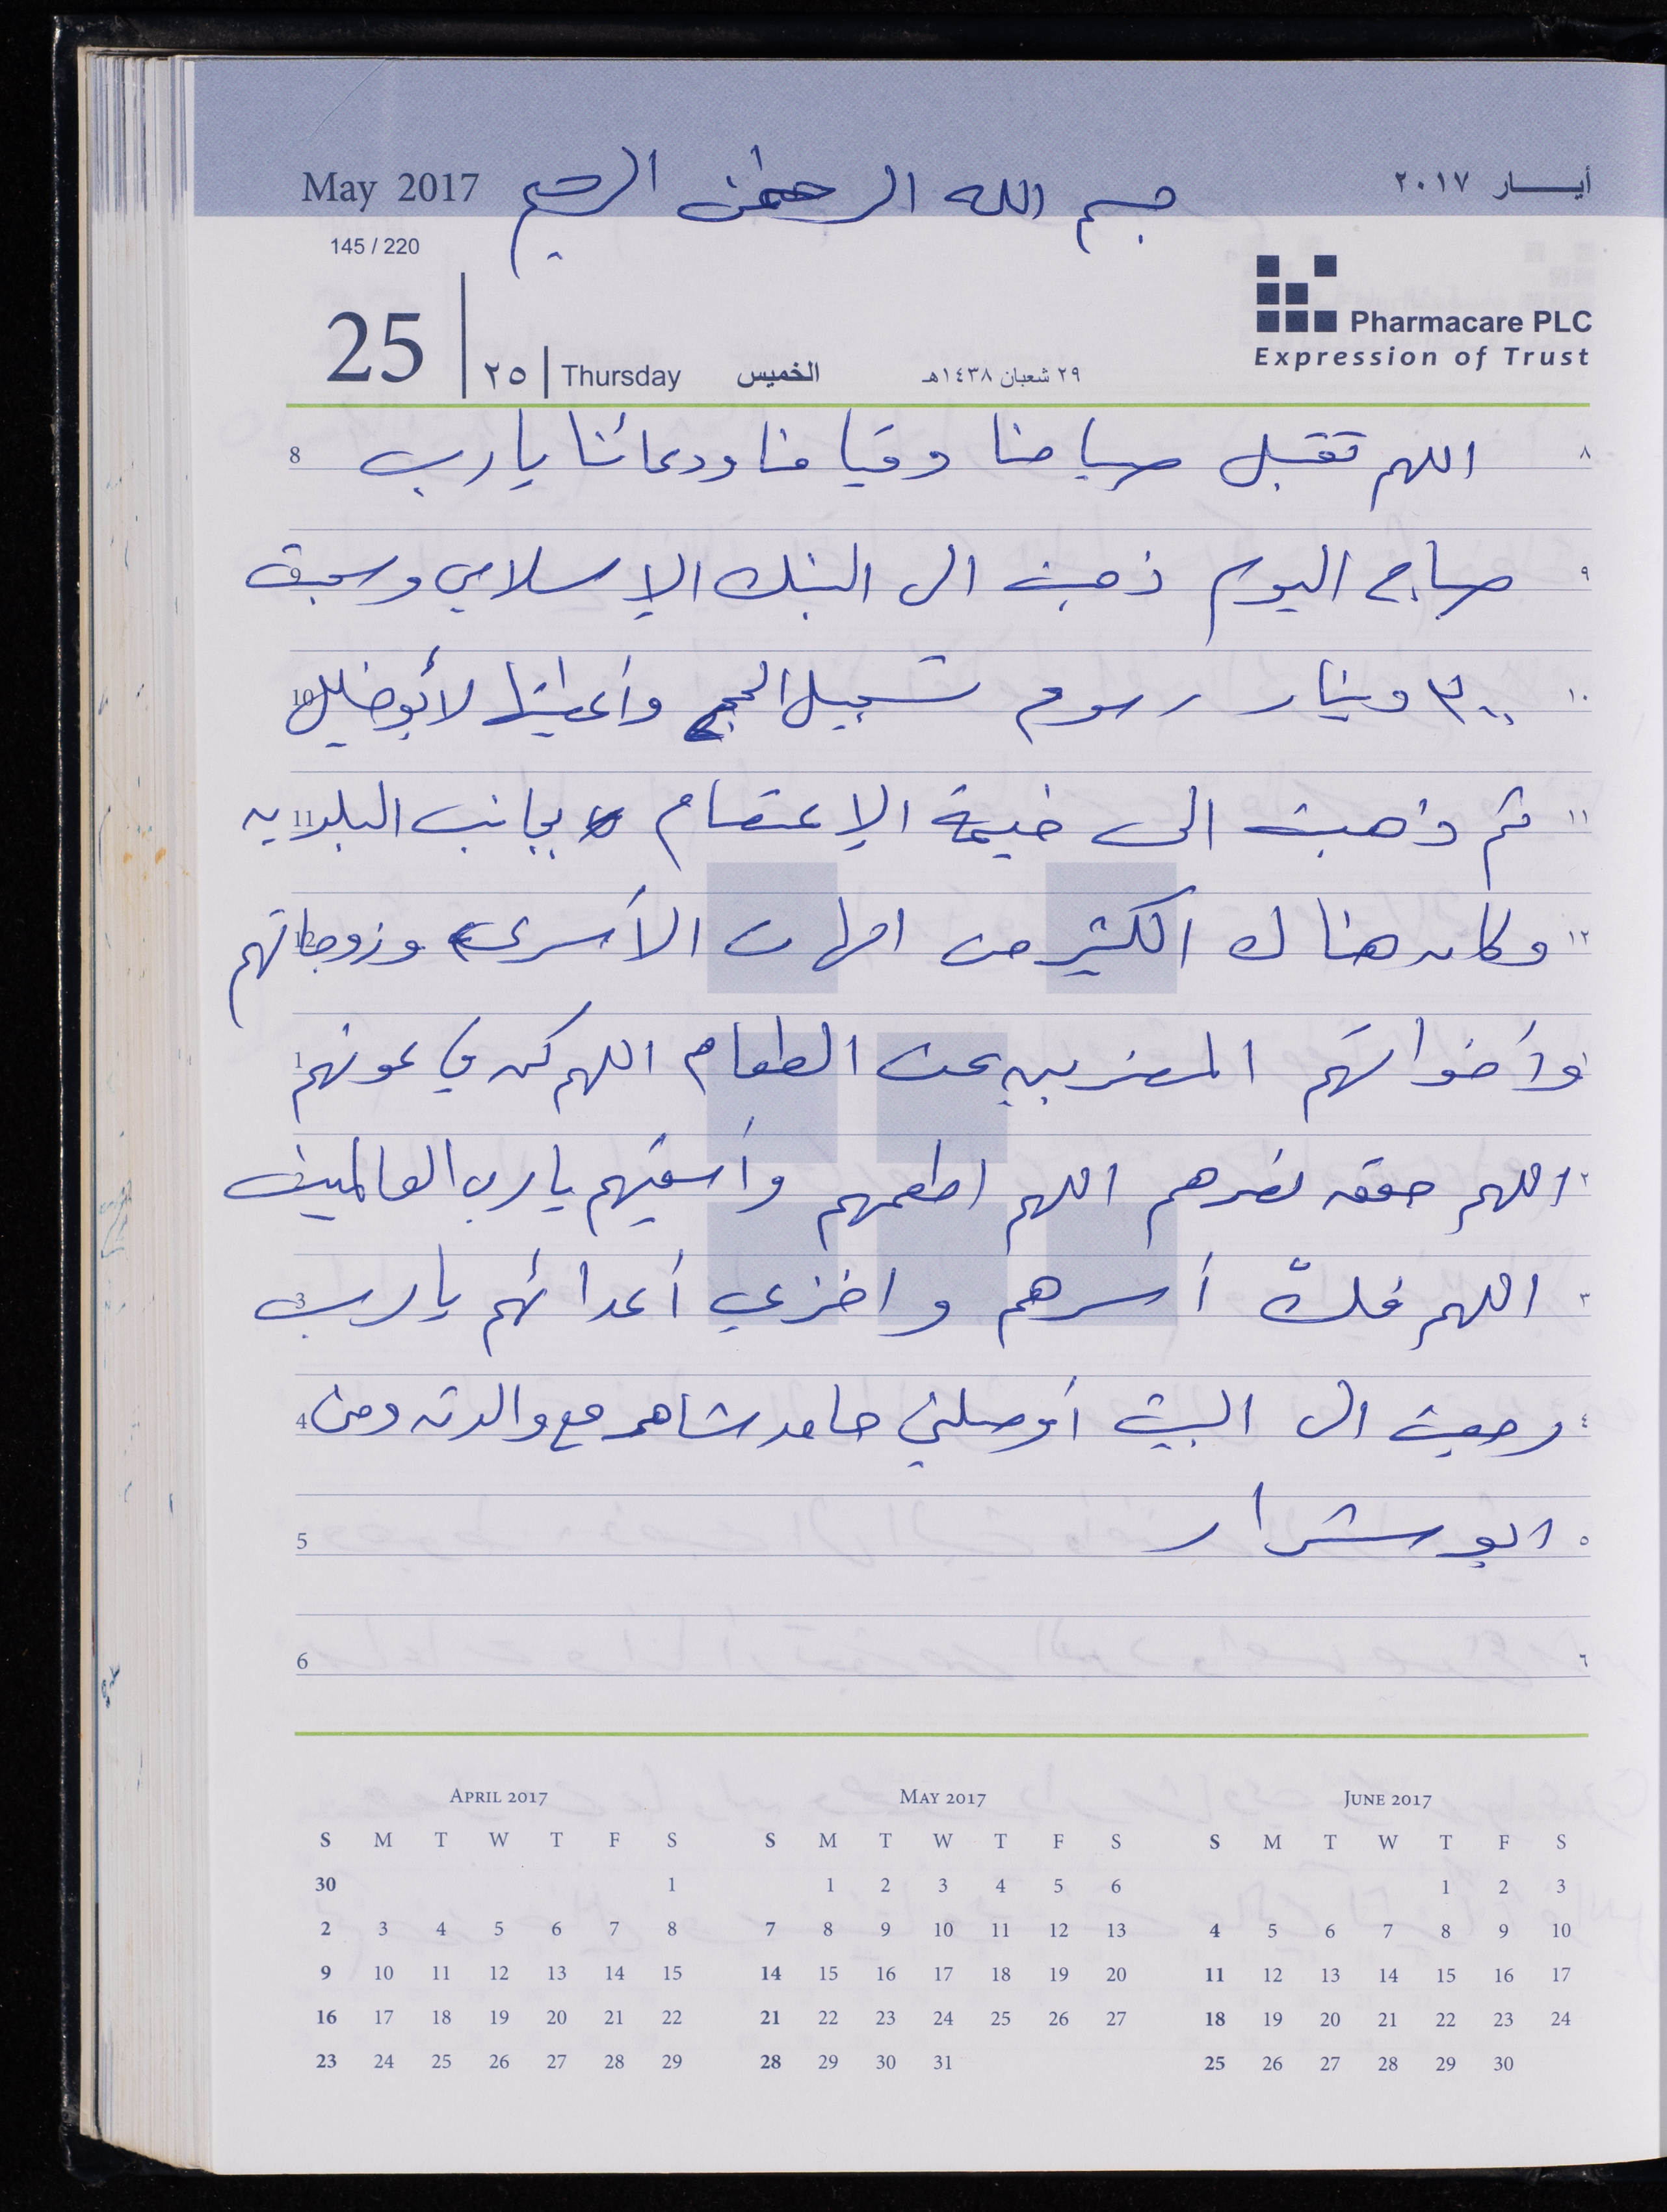 May 2017
بسم الله الرحمن الرحيم
أيـــار ٢٠١٧
145 / 220
25 ٢٥ Thursday الخميس ٢٩ شعبان ١٤٣٨هـ
Pharmacare PLC
Expression of Trust
8 اللهم تقبل صيامنا وقيامنا ودعائنا يا رب ٨
9 صباح اليوم ذهبت الى البنك الإسلامي وسحبت ٩
10 ٣٠٠ دينار رسوم تسجيل الحج وأعطيتها لأبو خليل ١٠
11 ثم ذهبت الى خيمة الإعتصام بجانب البلديه ١١
12 وكان هناك الكثير من امهات الأسرى وزوجاتهم ١٢
1 وأخواتهم المضربين عن الطعام اللهم كن في عونهم ١
اللهم حقق نصرهم اللهم اطعمهم وأسقيهم يا رب العالمين ٢
3 اللهم فكّ أسرهم واخزي أعدائهم يا رب ٣
4 رجعت الى البيت أوصلني حامد شاهر مع والدته ومن ٤
5 ابو شرار ٥
6 ٦
April 2017
S M T W T F S
30 1
2 3 4 5 6 7 8
9 10 11 12 13 14 15
16 17 18 19 20 21 22
23 24 25 26 27 28 29
May 2017
S M T W T F S
1 2 3 4 5 6
7 8 9 10 11 12 13
14 15 16 17 18 19 20
21 22 23 24 25 26 27
28 29 30 31
June 2017
S M T W T F S
1 2 3
4 5 6 7 8 9 10
11 12 13 14 15 16 17
18 19 20 21 22 23 24
25 26 27 28 29 30